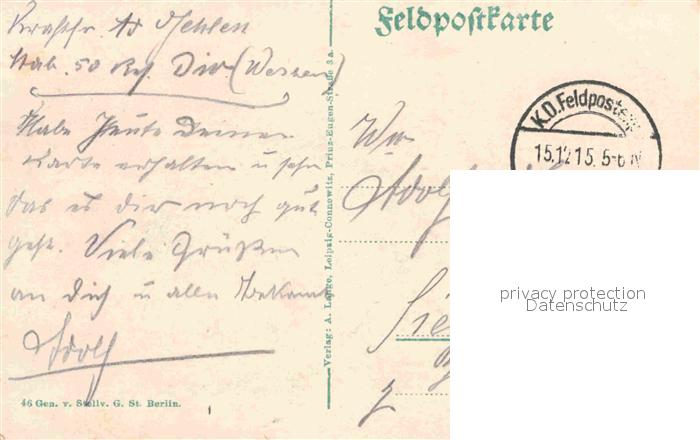 Feldpostkarte
Stab. 50 Res. Div (Westen)
Habe Heute Deine
Karte erhalten u sehe
das es dir noch gut
geht. Viele Grüße
an Dich u alle Bekannte
Adolf
46 Gen. v. Stellv. G. St. Berlin.
Verlag: A. Lange, Leipzig-Connewitz, Prinz-Eugen-Straße 3 a.
K.D. Feldpost
15.12 15. 5-6 N
Adolf
privacy protection
Datenschutz